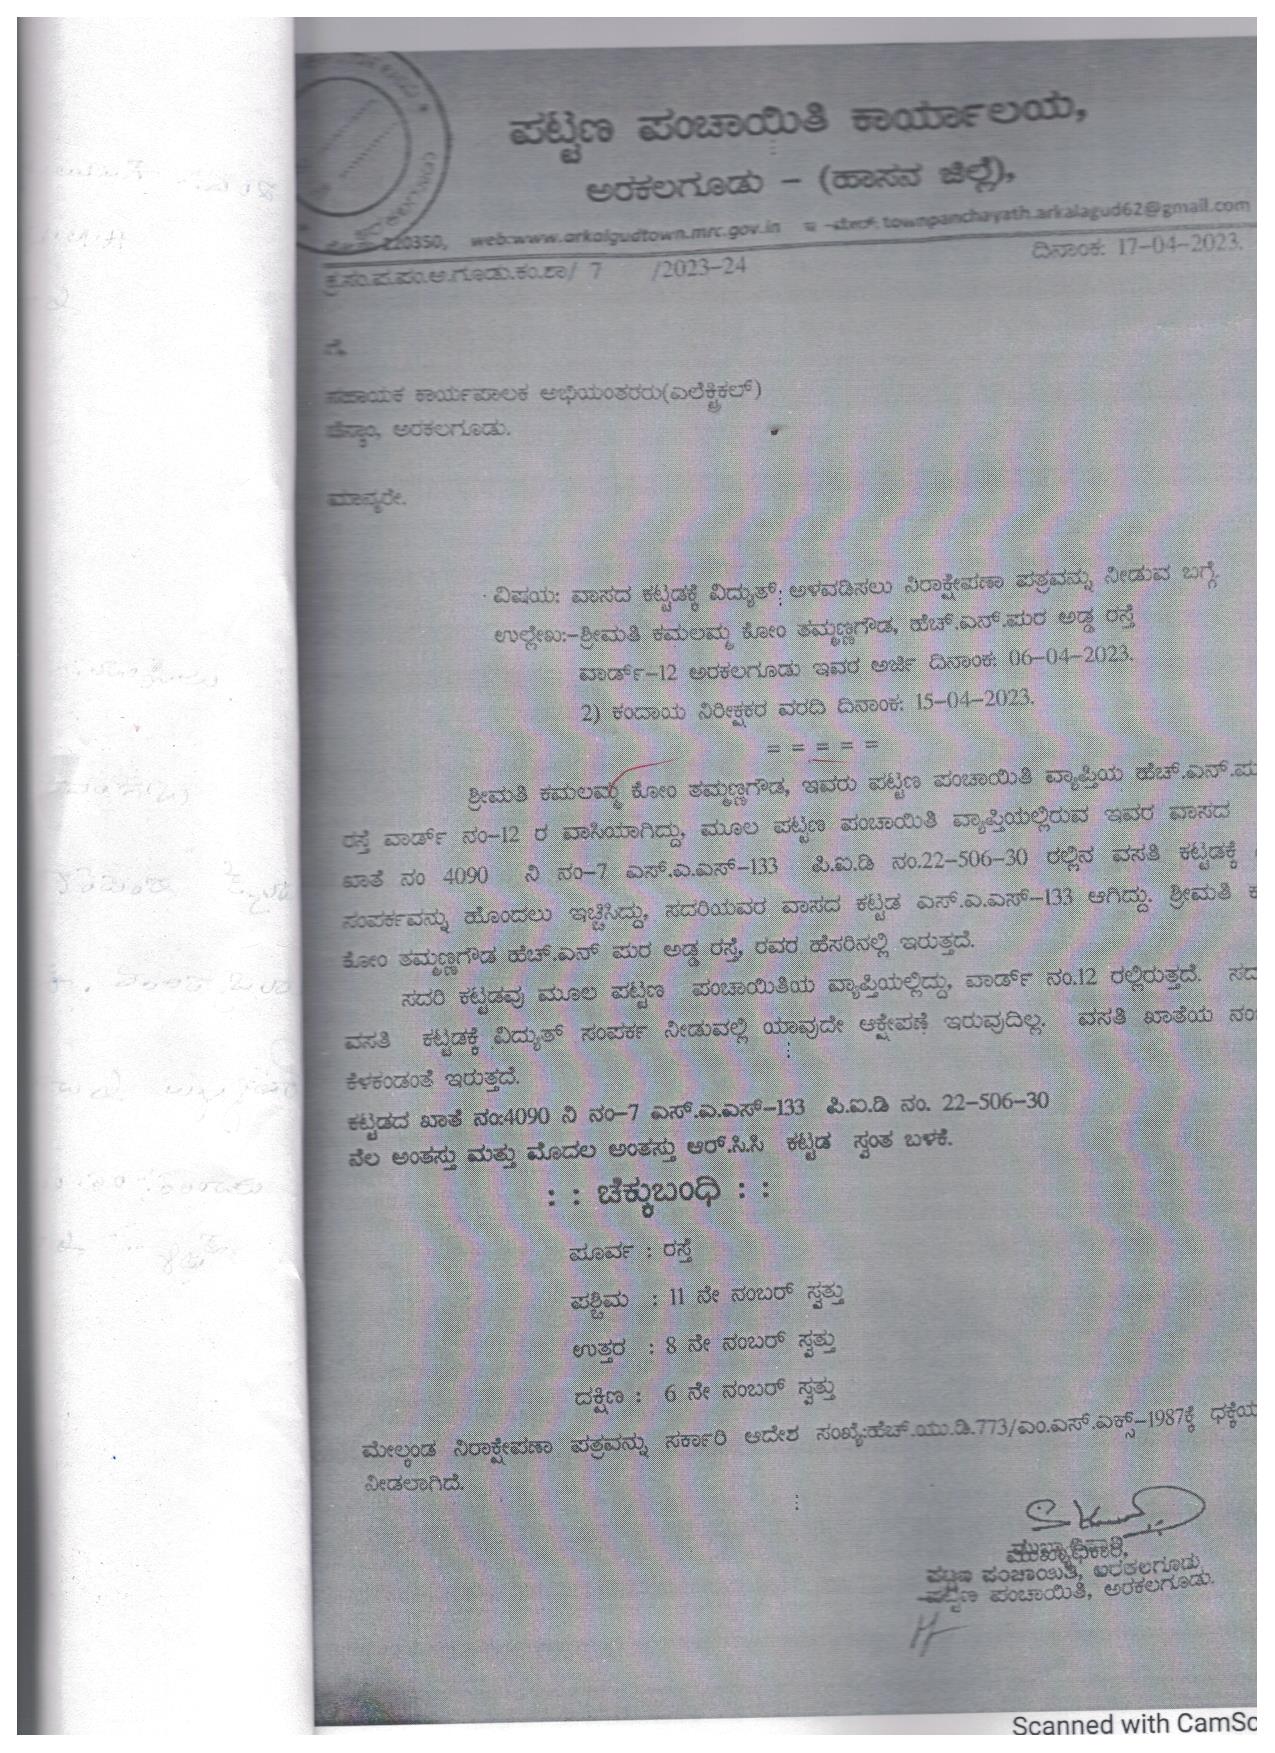 ಪಟ್ಟಣ ಪಂಚಾಯಿತಿ ಕಾರ್ಯಾಲಯ,
ಅರಕಲಗೂಡು – (ಹಾಸನ ಜಿಲ್ಲೆ),
220350, web:www.arkalgudtown.mrc.gov.in ಇ -ಮೇಲ್: townpanchayath.arkalagud62@gmail.com
ಕ್ರ.ಸಂ.ಪ.ಪಂ.ಅ.ಗೂಡು.ಕಂ.ಶಾ/ 7 /2023–24 ದಿನಾಂಕ: 17–04–2023.
ಗೆ,
ಸಹಾಯಕ ಕಾರ್ಯಪಾಲಕ ಅಭಿಯಂತರರು(ಎಲೆಕ್ಟ್ರಿಕಲ್)
ಚೆಸ್ಕಾಂ, ಅರಕಲಗೂಡು.
ಮಾನ್ಯರೇ.
ವಿಷಯ: ವಾಸದ ಕಟ್ಟಡಕ್ಕೆ ವಿದ್ಯುತ್ ಅಳವಡಿಸಲು ನಿರಾಕ್ಷೇಪಣಾ ಪತ್ರವನ್ನು ನೀಡುವ ಬಗ್ಗೆ.
ಉಲ್ಲೇಖ:–ಶ್ರೀಮತಿ ಕಮಲಮ್ಮ ಕೋಂ ತಮ್ಮಣ್ಣಗೌಡ, ಹೆಚ್.ಎನ್.ಪುರ ಅಡ್ಡ ರಸ್ತೆ
ವಾರ್ಡ್–12 ಅರಕಲಗೂಡು ಇವರ ಅರ್ಜಿ ದಿನಾಂಕ: 06–04–2023.
2) ಕಂದಾಯ ನಿರೀಕ್ಷಕರ ವರದಿ ದಿನಾಂಕ: 15–04–2023.
= = = = =
ಶ್ರೀಮತಿ ಕಮಲಮ್ಮ ಕೋಂ ತಮ್ಮಣ್ಣಗೌಡ, ಇವರು ಪಟ್ಟಣ ಪಂಚಾಯಿತಿ ವ್ಯಾಪ್ತಿಯ ಹೆಚ್.ಎನ್.ಪು
ರಸ್ತೆ ವಾರ್ಡ್ ನಂ–12 ರ ವಾಸಿಯಾಗಿದ್ದು, ಮೂಲ ಪಟ್ಟಣ ಪಂಚಾಯಿತಿ ವ್ಯಾಪ್ತಿಯಲ್ಲಿರುವ ಇವರ ವಾಸದ
ಖಾತೆ ನಂ 4090 ನಿ ನಂ–7 ಎಸ್.ಎ.ಎಸ್–133 ಪಿ.ಐ.ಡಿ ನಂ.22–506–30 ರಲ್ಲಿನ ವಸತಿ ಕಟ್ಟಡಕ್ಕೆ
ಸಂಪರ್ಕವನ್ನು ಹೊಂದಲು ಇಚ್ಚಿಸಿದ್ದು, ಸದರಿಯವರ ವಾಸದ ಕಟ್ಟಡ ಎಸ್.ಎ.ಎಸ್–133 ಆಗಿದ್ದು. ಶ್ರೀಮತಿ ಕ
ಕೋಂ ತಮ್ಮಣ್ಣಗೌಡ ಹೆಚ್.ಎನ್ ಪುರ ಅಡ್ಡ ರಸ್ತೆ, ರವರ ಹೆಸರಿನಲ್ಲಿ ಇರುತ್ತದೆ.
ಸದರಿ ಕಟ್ಟಡವು ಮೂಲ ಪಟ್ಟಣ ಪಂಚಾಯಿತಿಯ ವ್ಯಾಪ್ತಿಯಲ್ಲಿದ್ದು, ವಾರ್ಡ್ ನಂ.12 ರಲ್ಲಿರುತ್ತದೆ. ಸದ
ವಸತಿ ಕಟ್ಟಡಕ್ಕೆ ವಿದ್ಯುತ್ ಸಂಪರ್ಕ ನೀಡುವಲ್ಲಿ ಯಾವುದೇ ಆಕ್ಷೇಪಣೆ ಇರುವುದಿಲ್ಲ. ವಸತಿ ಖಾತೆಯ ನಂ
ಕೆಳಕಂಡಂತೆ ಇರುತ್ತದೆ.
ಕಟ್ಟಡದ ಖಾತೆ ನಂ:4090 ನಿ ನಂ–7 ಎಸ್.ಎ.ಎಸ್–133 ಪಿ.ಐ.ಡಿ ನಂ. 22–506–30
ನೆಲ ಅಂತಸ್ತು ಮತ್ತು ಮೊದಲ ಅಂತಸ್ತು ಆರ್.ಸಿ.ಸಿ ಕಟ್ಟಡ ಸ್ವಂತ ಬಳಕೆ.
: : ಚೆಕ್ಕುಬಂಧಿ : :
ಪೂರ್ವ : ರಸ್ತೆ
ಪಶ್ಚಿಮ : 11 ನೇ ನಂಬರ್ ಸ್ವತ್ತು
ಉತ್ತರ : 8 ನೇ ನಂಬರ್ ಸ್ವತ್ತು
ದಕ್ಷಿಣ : 6 ನೇ ನಂಬರ್ ಸ್ವತ್ತು
ಮೇಲ್ಕಂಡ ನಿರಾಕ್ಷೇಪಣಾ ಪತ್ರವನ್ನು ಸರ್ಕಾರಿ ಆದೇಶ ಸಂಖ್ಯೆ:ಹೆಚ್.ಯು.ಡಿ.773/ಎಂ.ಎಸ್.ಎಕ್ಸ್–1987ಕ್ಕೆ ಧಕ್ಕೆಯ
ನೀಡಲಾಗಿದೆ.
ಮುಖ್ಯಾಧಿಕಾರಿ,
ಪಟ್ಟಣ ಪಂಚಾಯಿತಿ, ಅರಕಲಗೂಡು
ಪಟ್ಟಣ ಪಂಚಾಯಿತಿ, ಅರಕಲಗೂಡು.
Scanned with CamSc